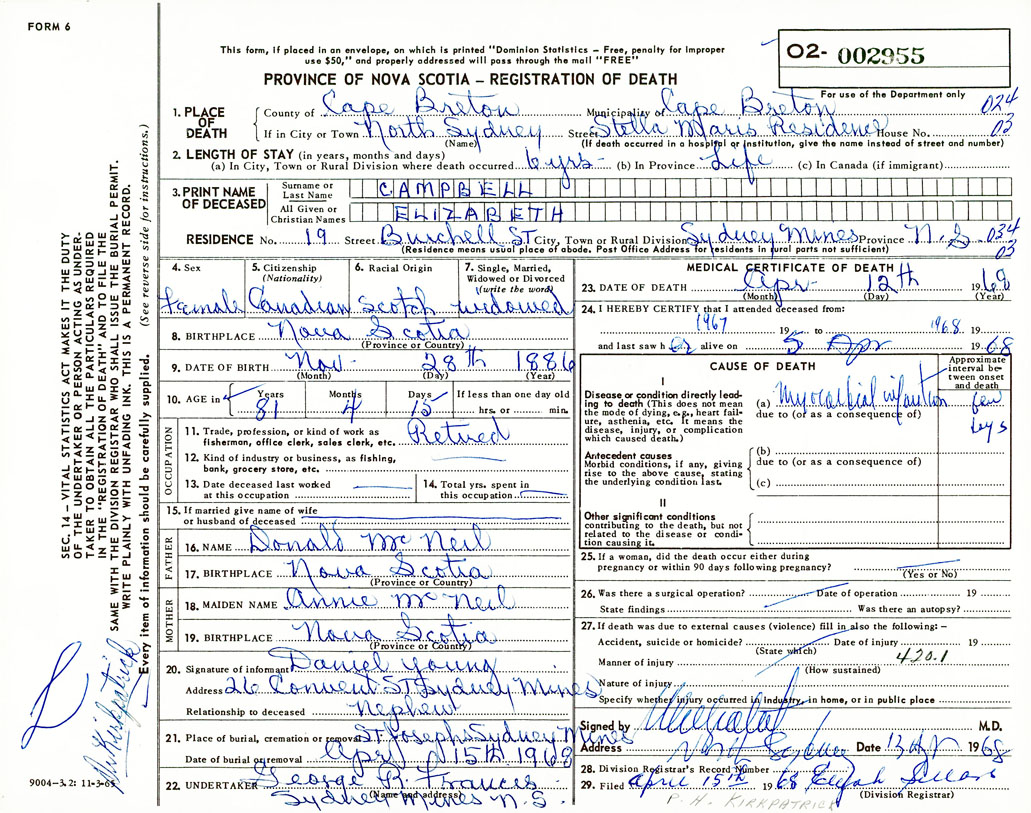 FORM 6
This form, if placed in an envelope, on which is printed "Dominion Statistics – Free, penalty for improper
use $50," and properly addressed will pass through the mail "FREE"
PROVINCE OF NOVA SCOTIA – REGISTRATION OF DEATH
O2- 002955
For use of the Department only
1. PLACE OF DEATH
County of Cape Breton Municipality of Cape Breton 024
If in City or Town North Sydney Street Stella Maris Residence House No. 03
(Name) (If death occurred in a hospital or institution, give the name instead of street and number)
2. LENGTH OF STAY (in years, months and days)
(a) In City, Town or Rural Division where death occurred 6 yrs- (b) In Province Life (c) In Canada (if immigrant)
3. PRINT NAME OF DECEASED
Surname or Last Name CAMPBELL
All Given or Christian Names ELIZABETH
RESIDENCE No. 19 Street Burchell ST City, Town or Rural Division Sydney Mines Province N.S 034
(Residence means usual place of abode. Post Office Address for residents in rural parts not sufficient) 03
4. Sex Female
5. Citizenship (Nationality) Canadian
6. Racial Origin Scotch
7. Single, Married, Widowed or Divorced (write the word) widowed
8. BIRTHPLACE Nova Scotia
(Province or Country)
9. DATE OF BIRTH Nov- 28th 1886
(Month) (Day) (Year)
10. AGE in Years 81 Months 4 Days 15 If less than one day old
hrs. or min.
OCCUPATION
11. Trade, profession, or kind of work as
fisherman, office clerk, sales clerk, etc. Retired
12. Kind of industry or business, as fishing,
bank, grocery store, etc.
13. Date deceased last worked
at this occupation
14. Total yrs. spent in
this occupation
15. If married give name of wife
or husband of deceased
FATHER
16. NAME Donald McNeil
17. BIRTHPLACE Nova Scotia
(Province or Country)
MOTHER
18. MAIDEN NAME Annie McNeil
19. BIRTHPLACE Nova Scotia
(Province or Country)
20. Signature of informant Daniel Young
Address 26 Convent ST Sydney Mines
Relationship to deceased Nephew
21. Place of burial, cremation or removal ST. Josephs Sydney Mines
Date of burial or removal April 15th 1968
22. UNDERTAKER George R. Frances
(Name and address) Sydney Mines N.S.
MEDICAL CERTIFICATE OF DEATH
23. DATE OF DEATH Apr- 12th 1968
(Month) (Day) (Year)
24. I HEREBY CERTIFY that I attended deceased from:
1967 19 to 1968 19
and last saw alive on 5 Apr 1968
CAUSE OF DEATH
Approximate interval between onset and death
I
Disease or condition directly leading to death (This does not mean the mode of dying, e.g., heart failure, asthenia, etc. It means the disease, injury, or complication which caused death.)
(a) Myocardial infarction few days
due to (or as a consequence of)
Antecedent causes
Morbid conditions, if any, giving rise to the above cause, stating the underlying condition last.
(b)
due to (or as a consequence of)
(c)
II
Other significant conditions
contributing to the death, but not related to the disease or condition causing it.
25. If a woman, did the death occur either during
pregnancy or within 90 days following pregnancy?
(Yes or No)
26. Was there a surgical operation? Date of operation 19
State findings Was there an autopsy?
27. If death was due to external causes (violence) fill in also the following: –
Accident, suicide or homicide? Date of injury 19
(State which)
Manner of injury 420.1
(How sustained)
Nature of injury
Specify whether injury occurred in industry, in home, or in public place
Signed by M.D.
Address North Sydney Date 13 Apr 1968
28. Division Registrar's Record Number
29. Filed April 15th 1968
(Division Registrar)
P. H. KIRKPATRICK
SEC. 14 – VITAL STATISTICS ACT MAKES IT THE DUTY
OF THE UNDERTAKER OR PERSON ACTING AS UNDER-
TAKER TO OBTAIN ALL THE PARTICULARS REQUIRED
IN THE "REGISTRATION OF DEATH" AND TO FILE THE
SAME WITH THE DIVISION REGISTRAR WHO SHALL ISSUE THE BURIAL PERMIT.
WRITE PLAINLY WITH UNFADING INK. THIS IS A PERMANENT RECORD.
Every item of information should be carefully supplied. (See reverse side for instructions.)
Kirkpatrick
9004-3.2: 11-3-65